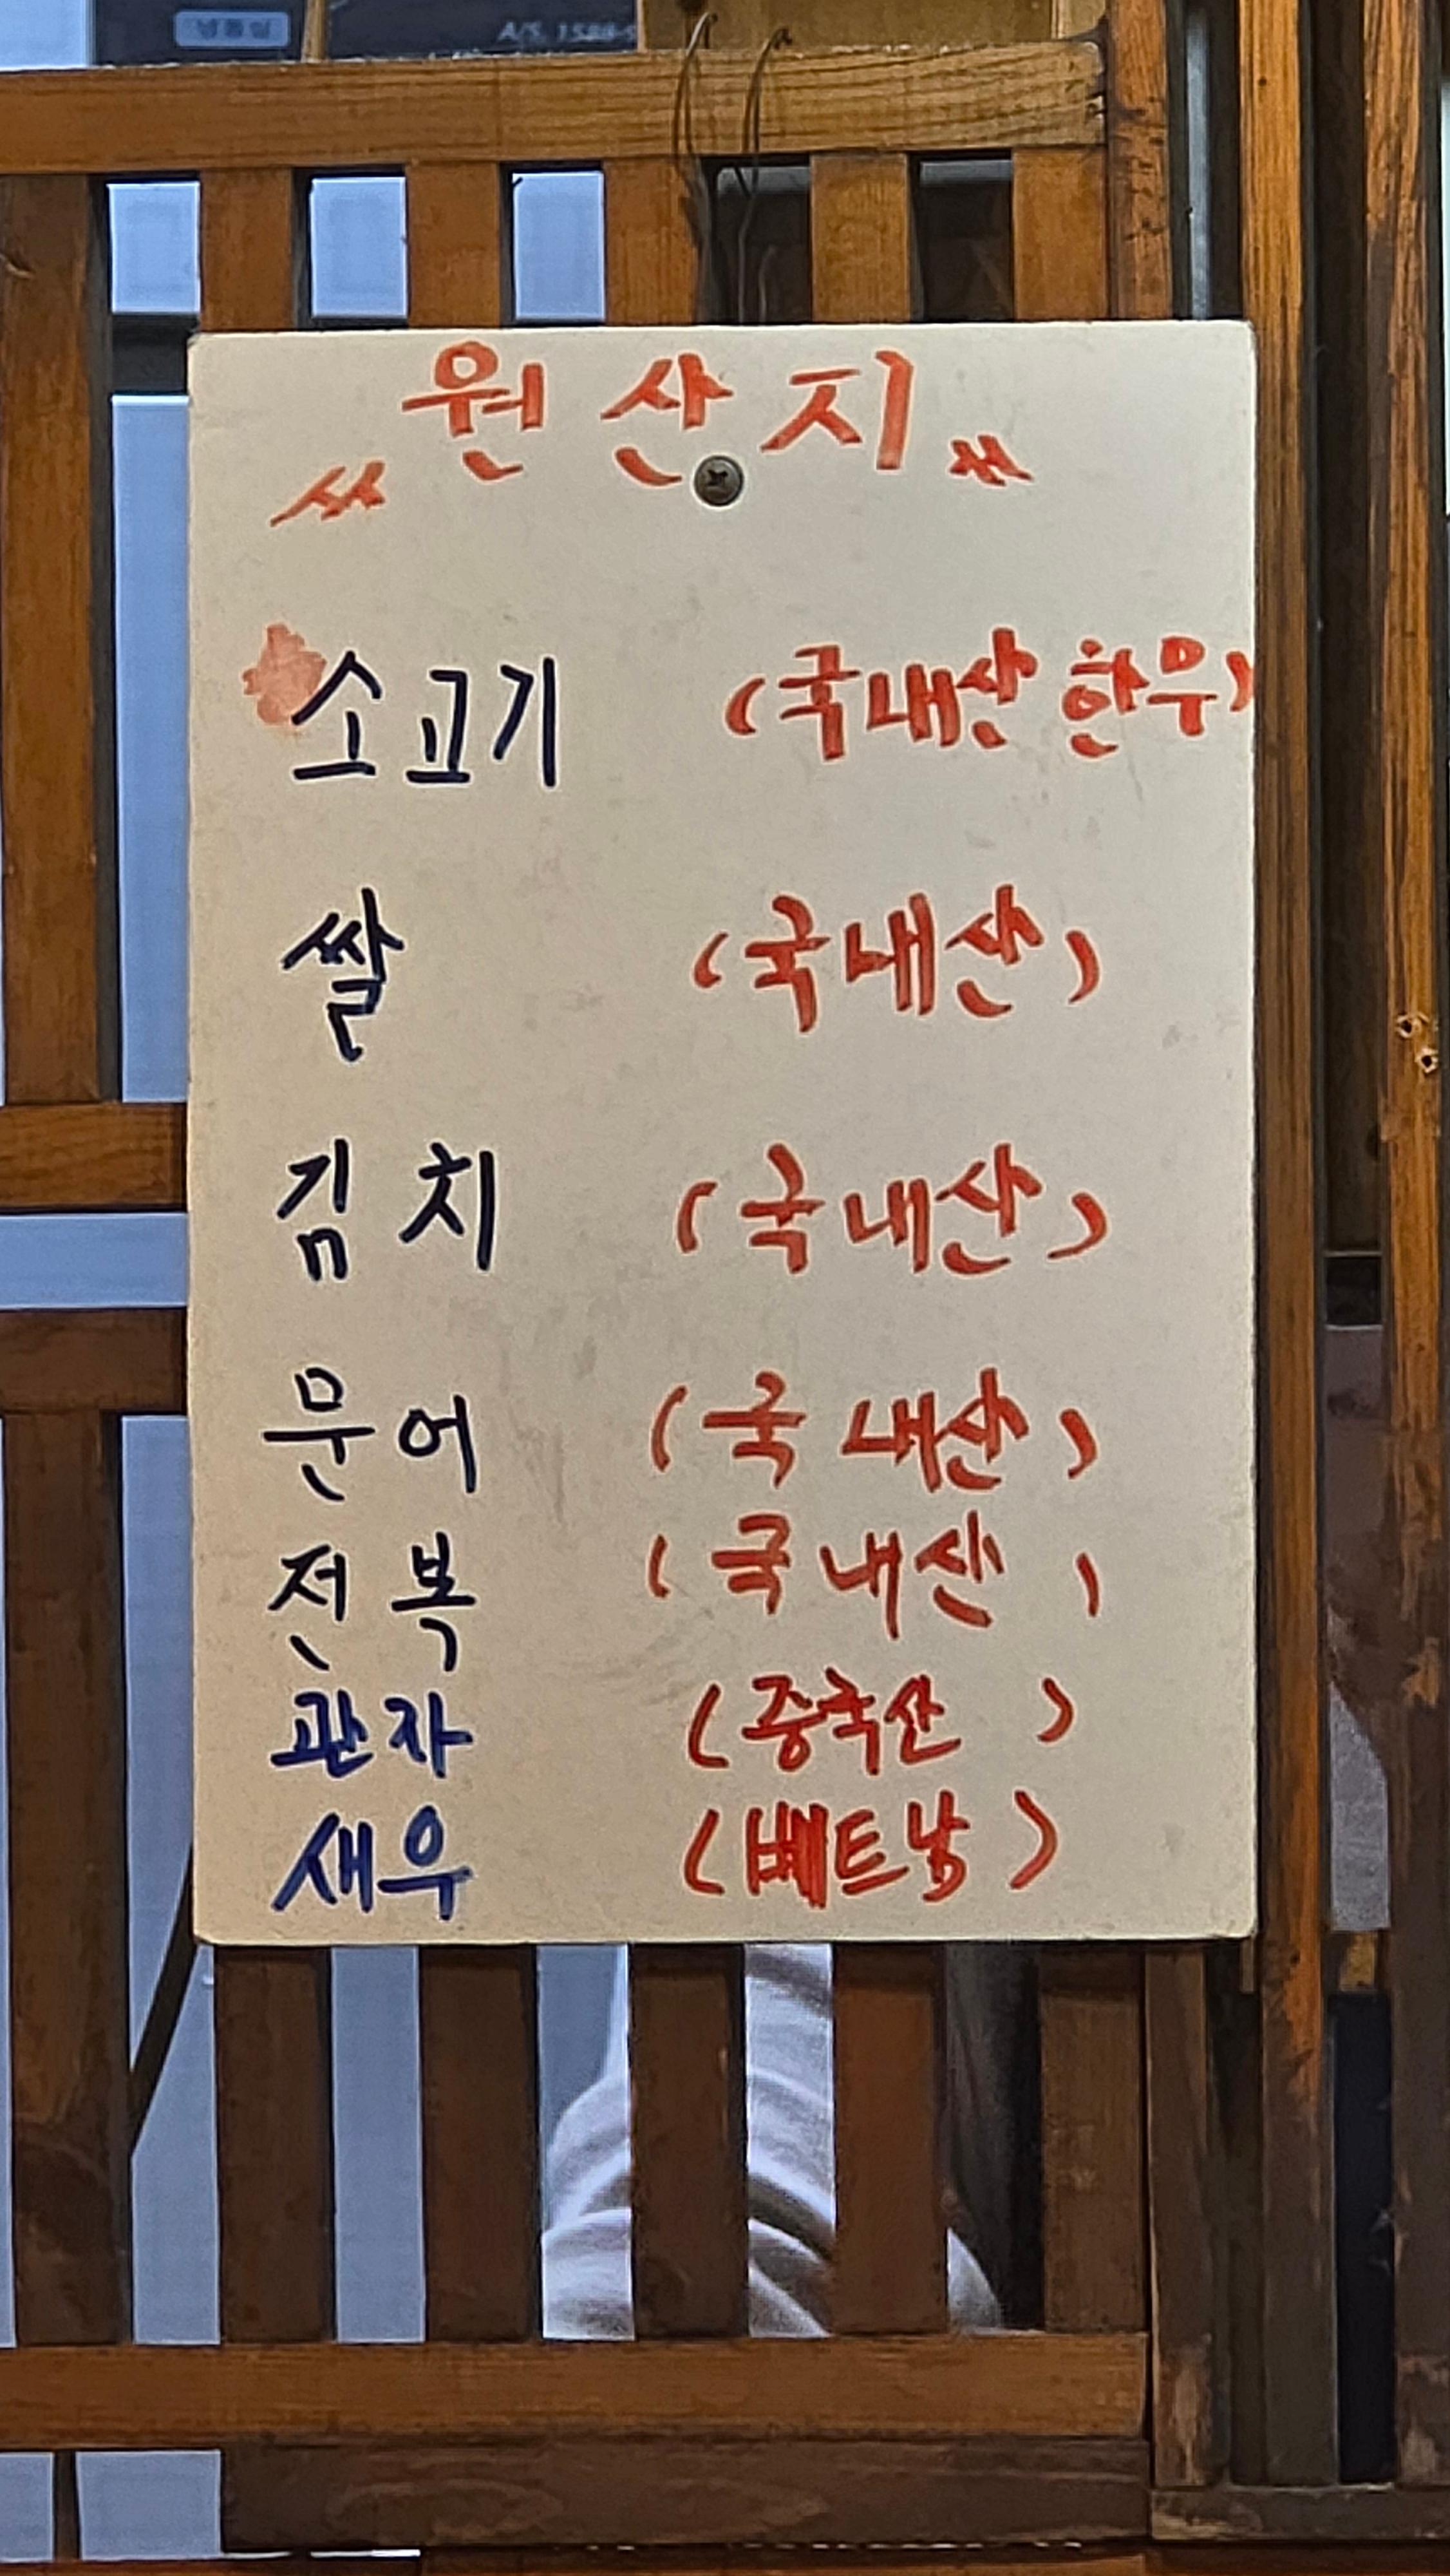 냉동실
A/S. 1588-
〃원산지〃
소고기 (국내산 한우)
쌀 (국내산)
김치 (국내산)
문어 (국내산)
전복 (국내산)
관자 (중국산)
새우 (베트남)